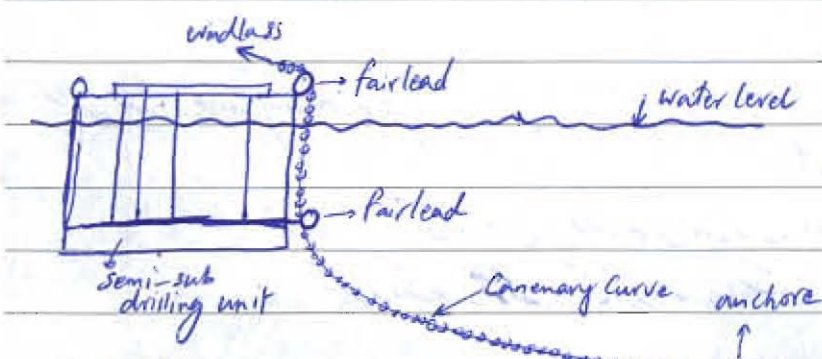 windlass
fairlead
water level
fairlead
semi-sub
drilling unit
Canenary Curve
anchore